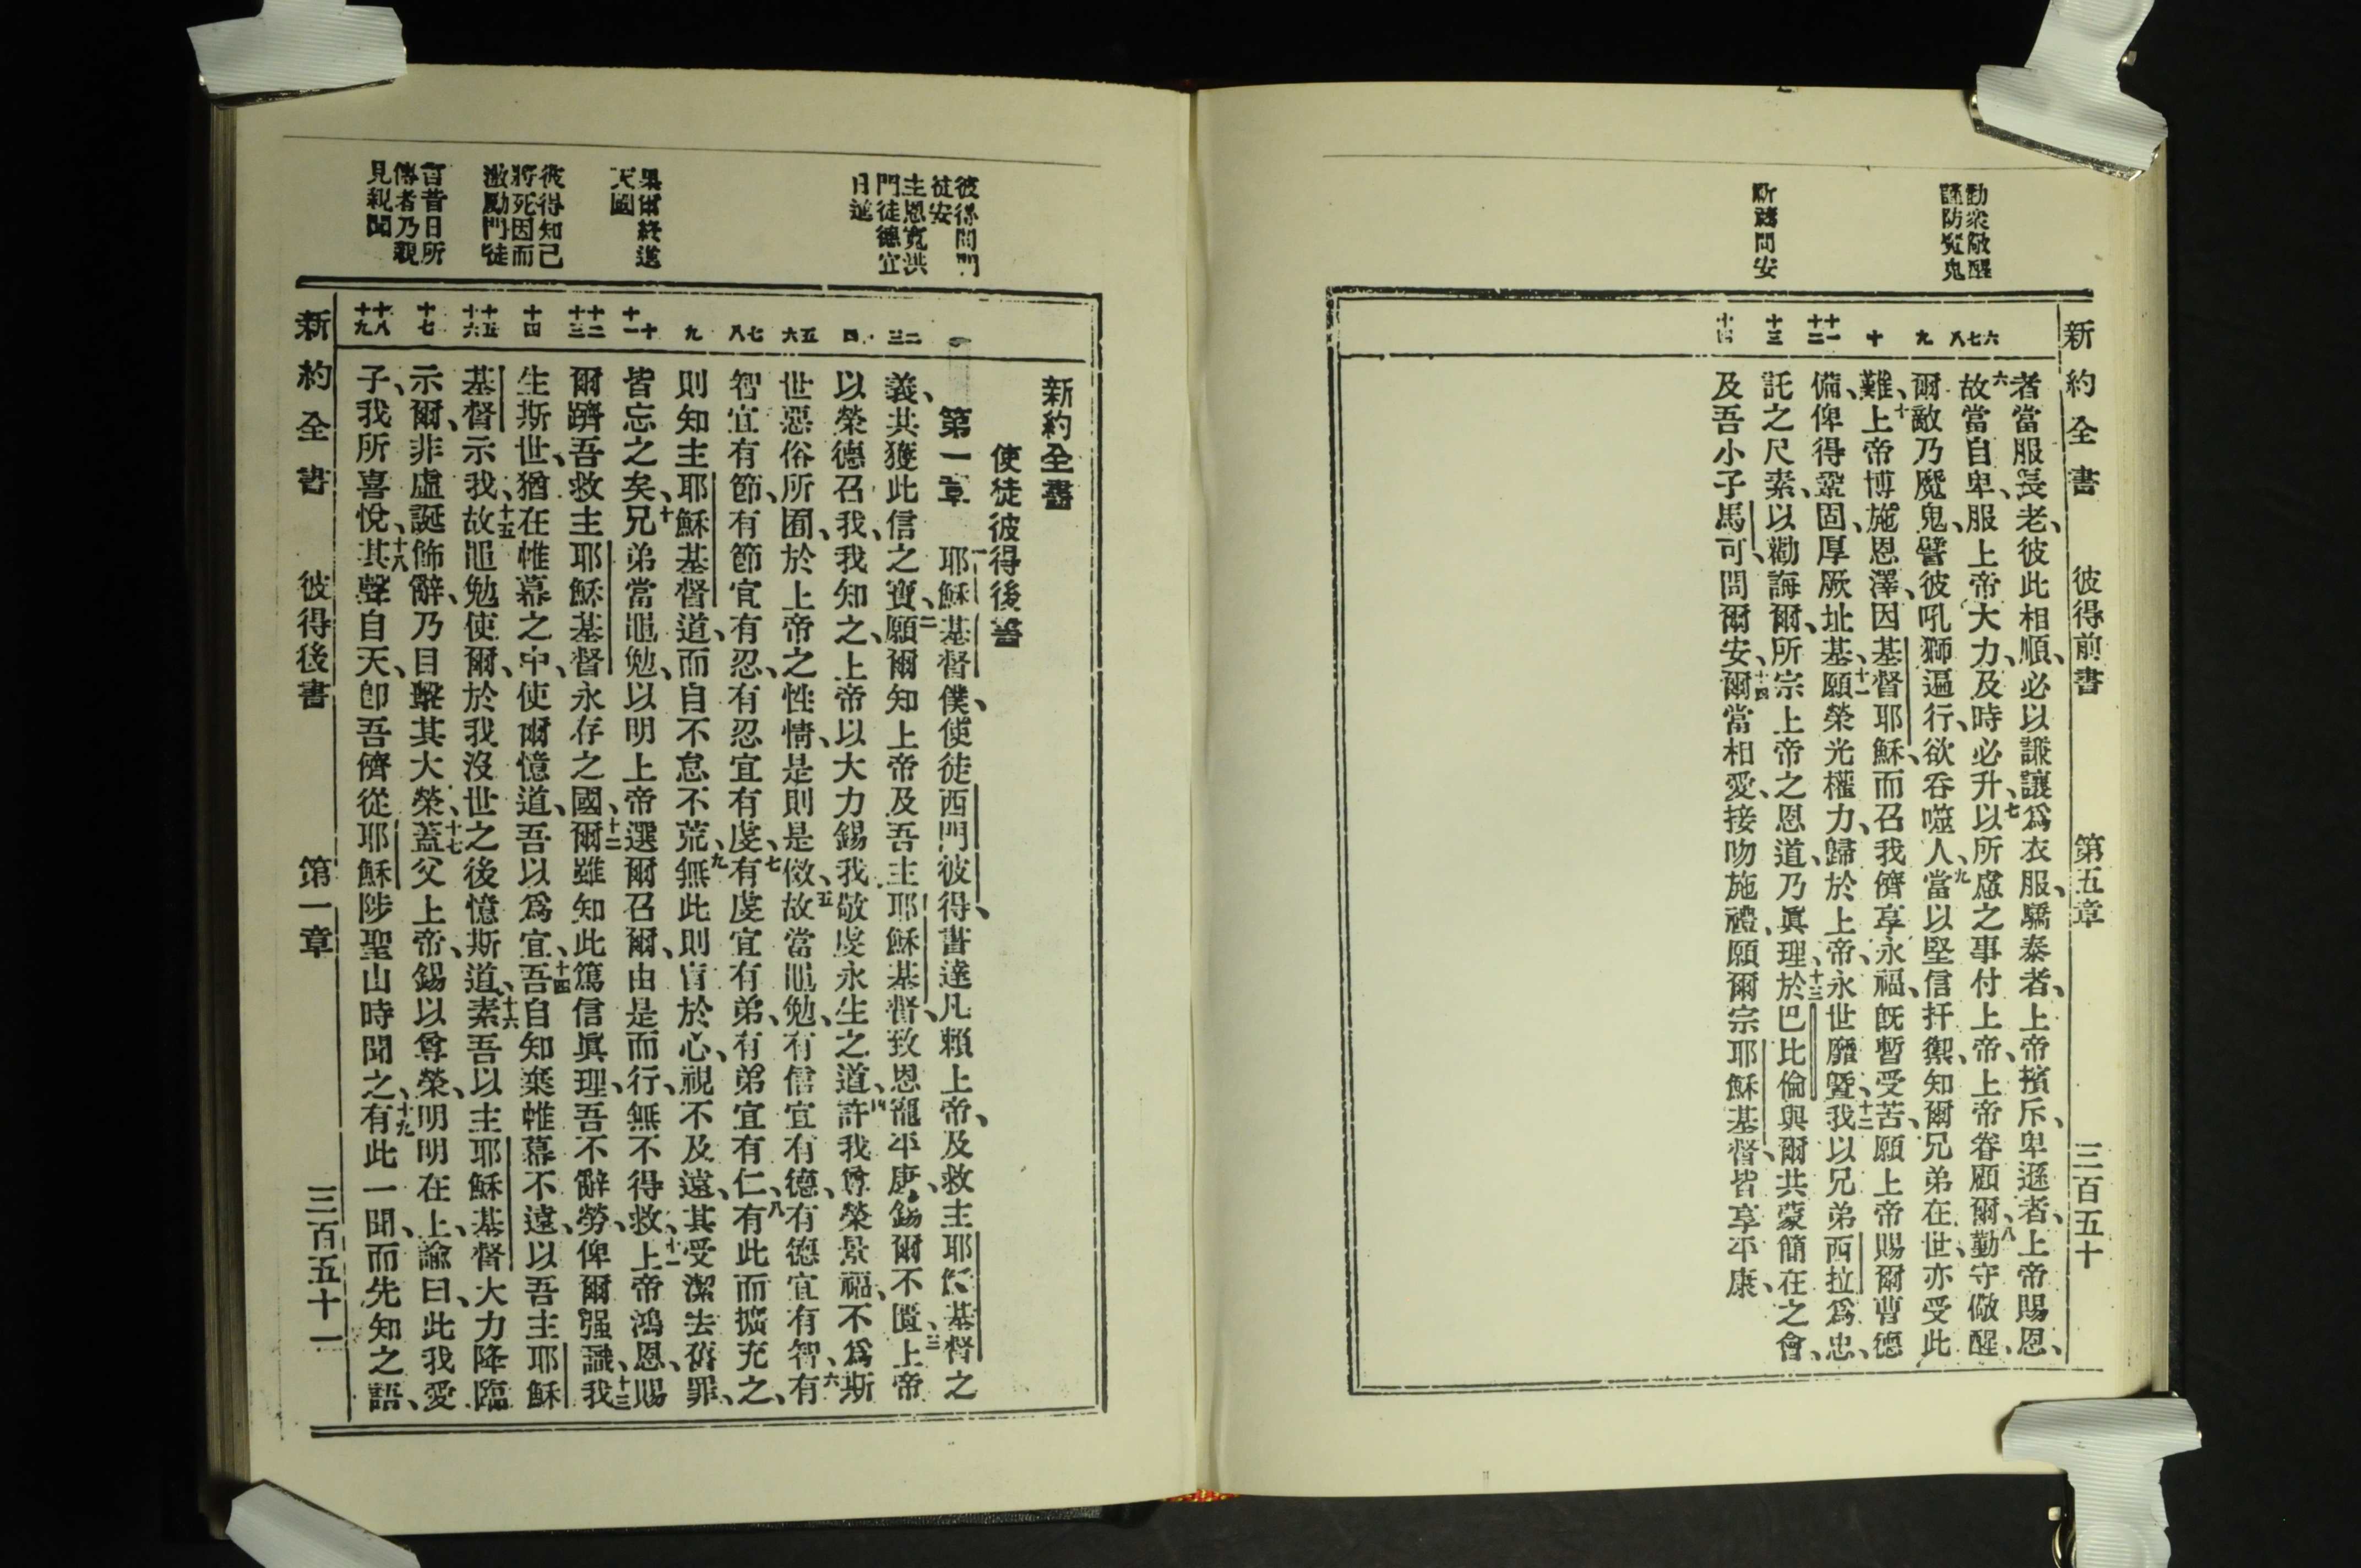 新約全書 彼得前書 第五章 三百五十
勸衆儆醒
謹防魔鬼
祈禱問安
六
七
八
九
十
十一
十二
十三
十四
者當服長老、彼此相順、必以謙讓爲衣服、驕泰者、上帝擯斥、卑遜者、上帝賜恩、
六故當自卑、服上帝大力、及時必升、七以所慮之事付上帝、上帝眷顧爾、八勤守儆醒、
爾敵乃魔鬼、譬彼吼獅、遍行、欲吞噬人、九當以堅信扞禦、知爾兄弟在世、亦受此
難、十上帝博施恩澤、因基督耶穌、而召我儕享永福、旣暫受苦、願上帝賜爾曹德
備、俾得鞏固、厚厥址基、十一願榮光權力、歸於上帝、永世靡曁、十二我以兄弟西拉爲忠、
託之尺素、以勸誨爾、所宗上帝之恩道、乃眞理、十三於巴比倫與爾共蒙簡在之會、
及吾小子馬可、問爾安、十四爾當相愛、接吻施禮、願爾宗耶穌基督、皆享平康、
彼得問門
徒安
主恩寬洪
門徒德宜
日進
果爾終進
天國
彼得知己
將死因而
激勵門徒
言昔日所
傳者乃親
見親聞
一
二
三
四
五
六
七
八
九
十
十一
十二
十三
十四
十五
十六
十七
十八
十九
新約全書
使徒彼得後書
第一章 一耶穌基督僕、使徒西門彼得、書達凡賴上帝、及救主耶穌基督之
義、共獲此信之寶、二願爾知上帝及吾主耶穌基督、致恩寵平康、錫爾不匱、三上帝
以榮德召我、我知之、上帝以大力錫我敬虔永生之道、四許我尊榮景福、不爲斯
世惡俗所囿、於上帝之性情、是則是傚、五故當黽勉、有信宜有德、有德宜有智、六有
智宜有節、有節宜有忍、有忍宜有虔、七有虔宜有弟、有弟宜有仁、八有此而擴充之、
則知主耶穌基督道、而自不怠不荒、九無此則盲於心、視不及遠、其受潔去舊罪、
皆忘之矣、十兄弟當黽勉、以明上帝選爾召爾、由是而行、無不得救、十一上帝鴻恩、賜
爾躋吾救主耶穌基督永存之國、十二爾雖知此篤信眞理、吾不辭勞、俾爾强識、十三我
生斯世、猶在帷幕之中、使爾憶道、吾以爲宜、十四吾自知棄帷幕不遠、以吾主耶穌
基督示我、十五故黽勉使爾、於我沒世之後憶斯道、十六素吾以主耶穌基督大力降臨
示爾、非虛誕飾辭、乃目擊其大榮、十七蓋父上帝、錫以尊榮、明明在上、諭曰、此我愛
子、我所喜悅、十八其聲自天、卽吾儕從耶穌陟聖山時聞之、十九有此一聞、而先知之語、
新約全書 彼得後書 第一章 三百五十一